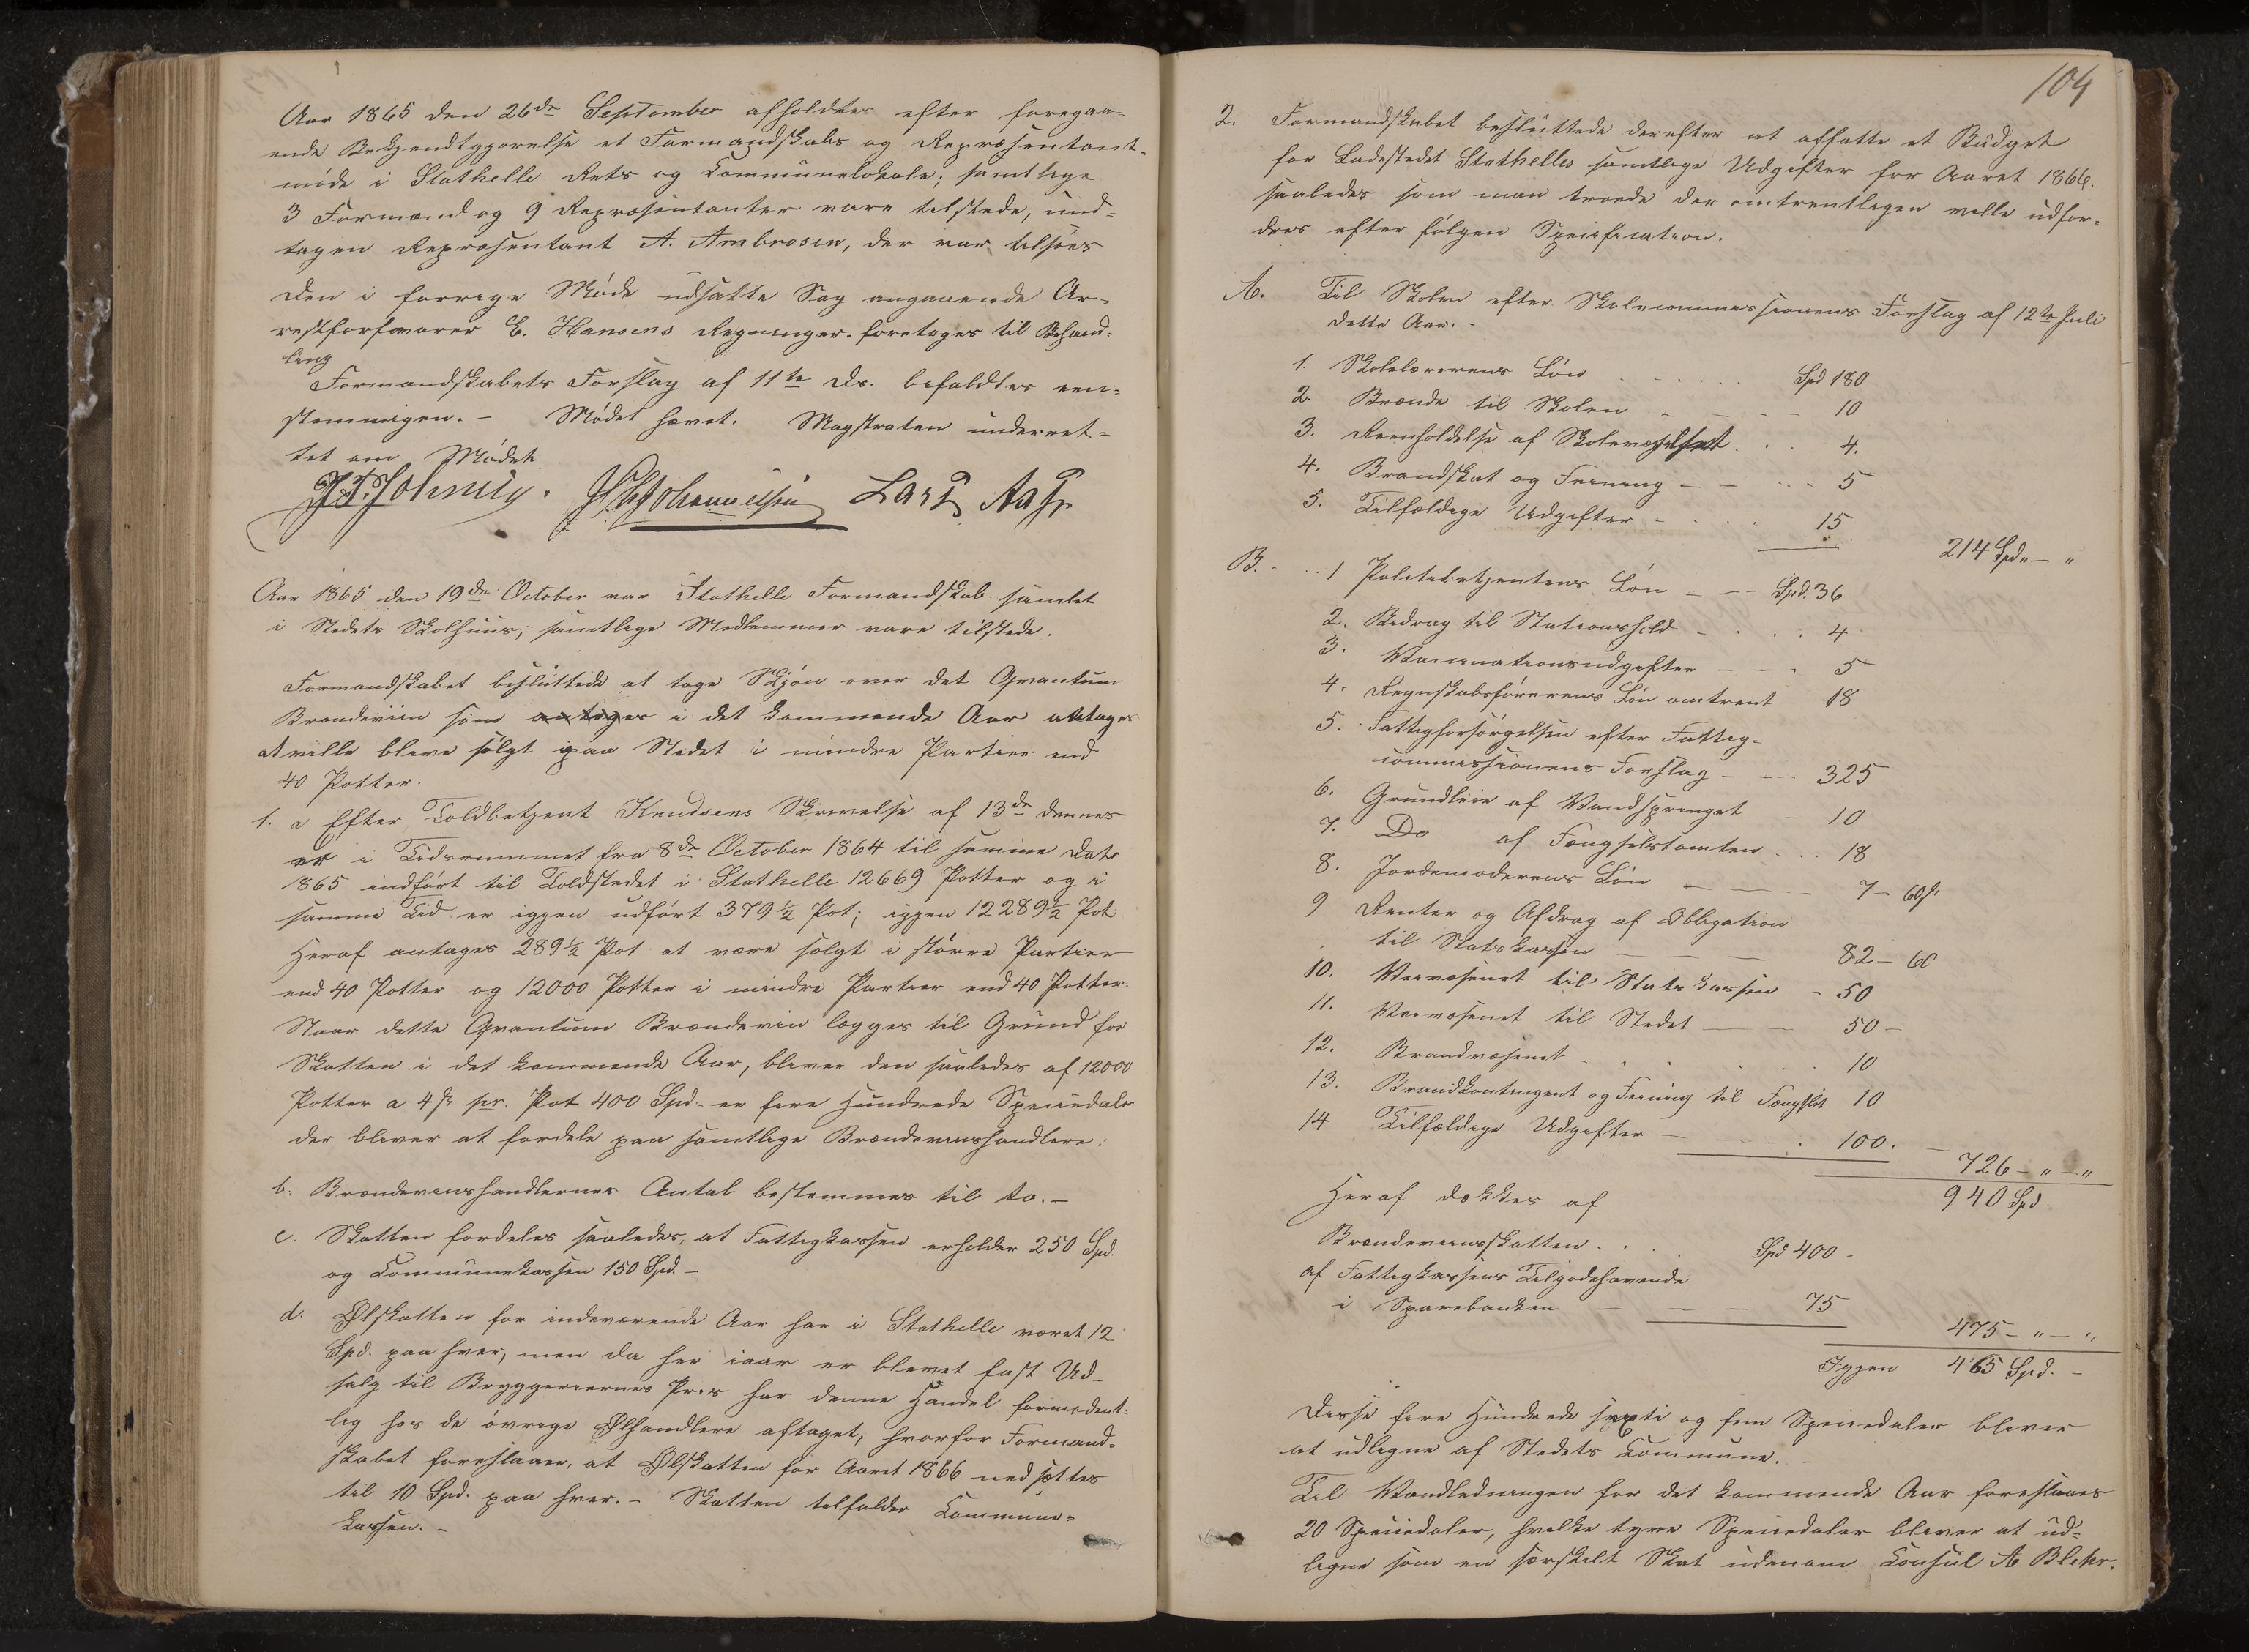 Aar 1865 den 26de September afholdtes efter foregaa-
ende Bekjendtgjørelse et Formandskabs og Repræsentant-
møde i Stathelle Rets og Communelokale; samtlige
3 Formænd og 9 Repræsentanter vare tilstede, und-
tagen Repræsentant A. Ambrosen, der var tilsøes
Den i forrige Møde udsatte Sag angaaende Ar-
restforvarer E. Hansens Regninger foretoges til Behand-
ling
Formandskabets Forslag af 11te ds. bifaldtes een-
stemmigen. – Mødet hævet. Magistraten underret-
tet om Mødet.
Lars Aass
Aar 1865 den 19de October var Stathelle Formandskab samlet
i Stedets Skolhuus; samtlige Medlemmer vare tilstede.
Formandskabet besluttede at tage Skjøn over det Qvantum
Brændeviin som antages i det kommende Aar antages
at ville blive solgt paa Stedet i mindre Partier end
40 Potter.
1. a Efter Toldbetjent Knudsens Skrivelse af 13de dennes
er i Tidsrummet fra 8de October 1864 til samme Dato
1865 indført til Toldstedet i Stathelle 12669 Potter og i
samme Tid er igjen udført 379½ Pot; igjen 12289½ Pot
Heraf antages 289½ Pot at være solgt i større Partier
end 40 Potter og 12000 Potter i mindre Partier end 40 Potter.
Naar dette Qvantum Brændeviin lægges til Grund for
Skatten i det kommende Aar, bliver den saaledes af 12000
Potter a 4 s pr. Pot 400 Spd. er fire Hundrede Speciedaler
der bliver at fordele paa samtlige Brændeviinshandlere:
b. Brændeviinshandlernes Antal bestemmes til to. –
c. Skatten fordeles saaledes, at Fattigkassen erholder 250 Spd.
og Communekassen 150 Spd. –
d. Ølskatten for indeværende Aar har i Stathelle været 12
Spd. paa hver, men da her iaar er blevet fast Ud-
salg til Bryggeriernes Pris har denne Handel formodent-
lig hos de øvrige Ølhandlere aftaget, hvorfor Formand-
skabet foreslaaer, at Ølskatten for Aaret 1866 nedsættes
til 10 Spd. paa hver. – Skatten tilfalder Commune-
kassen. –
104
2. Formandskabet besluttede derefter at affatte et Budget
for Ladestedet Stathelles samtlige Udgifter for Aaret 1866.
saaledes som man troede der omtrentligen ville udfor-
dres efter følgen Specification.
A. Til Skolen efter Skolecommissionens Forslag af 12te Juli
dette Aar. –
1. Skolelærerens Løn Spd 180
2. Brænde til Skolen – – – 10
3. Reenholdelse af Skoleværelset . . 4.
4. Brandskat og Feiening – – – 5
5. Tilfældige Udgifter – . . 15
214 Spd „ – „
B. – .. 1 Politibetjentens Løn – – Spd. 36
2. Bidrag til Stationshold – . . . 4
3. Vaccinationsudgifter – – – 5
4. Regnskabsførerens Løn omtrent 18
5. Fattigforsørgelsen efter Fattig-
commissionens Forslag – – 325
6. Grundleie af Vandspringet – 10
7. Do af Fængselstomten . . . 18
8. Jordemoderens Løn – – – 7 – 60 s
9 Renter og Afdrag af Obligation
til Statskassen – – – 82 – 60
10. Veivæsenet til Statskassen – 50
11. Veivæsenet til Stedet – – 50 –
12. Brandvæsenet – . . . . 10
13. Brandkontingent og Feiening til Fængslet 10
14 Tilfældige Udgifter – – . 100. –
726 – „ – „
940 Spd
Heraf dækkes af
Brændeviinsskatten . . Spd 400 –
af Fattigkassens Tilgodehavende
i Sparebanken – – – 75
475 – „ – „
Igjen 465 Spd. –
Disse fire Hundrede sexti og fem Speciedaler bliver
at udligne af Stedets Commune. –
Til Vandledningen for det kommende Aar foreslaaes
20 Speciedaler, hvilke tyve Speciedaler bliver at ud-
ligne som en særskilt Skat udenom Consul A Blehr.